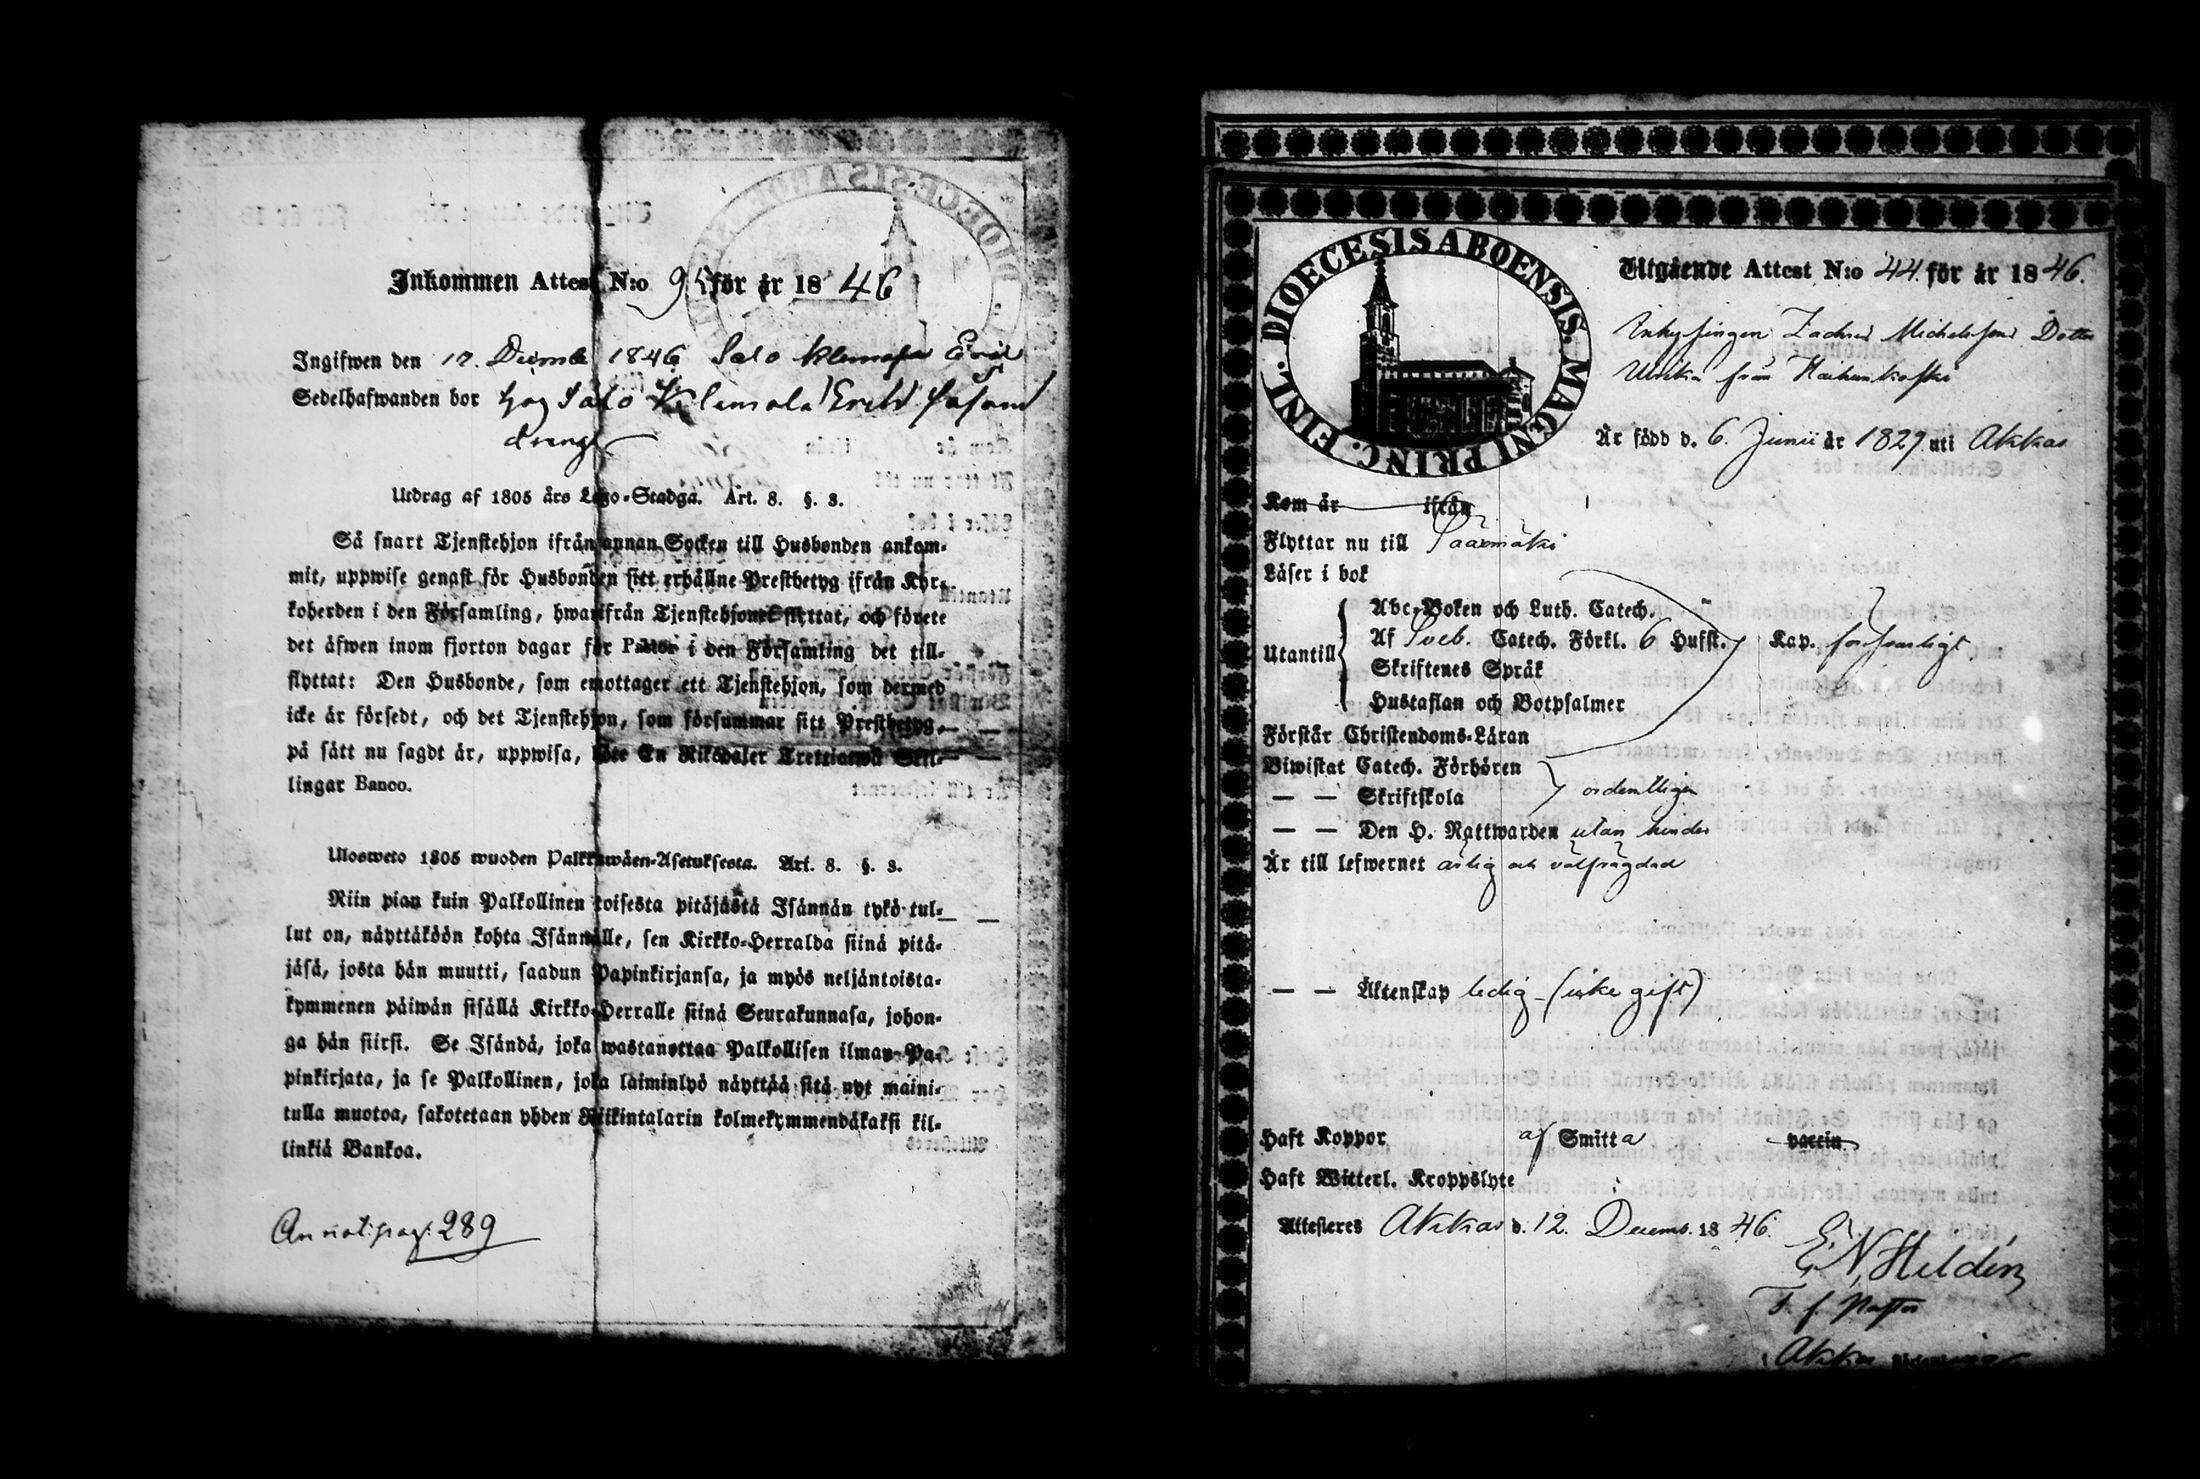 Inkommen Attest N:o 95 för år 1846
Ingifwen den 17. Decemb 1846 Salo Klemola Erik
Sedelhafwanden bor hos Salo Klemola Erik såsom
dräng
Utdrag af 1805 års Lego-Stadga. Art. 8. §. 3.
Så snart Tjenstehjon ifrån annan Socken till Husbonden ankom-
mit, uppwise genast för Husbonden sitt erhållne Prestbetyg ifrån Kyr-
koherden i den Församling, hwarifrån Tjenstehjonet flyttat, och förete
det äfwen inom fjorton dagar för Pastor i den Församling det till-
flyttat: Den Husbonde, som emottager ett Tjenstehjon, som dermed
icke är försedt, och det Tjenstehjon, som försummar sitt Prestbetyg,
på sätt nu sagdt är, uppwisa, böte En Riksdaler Trettiotwå Skil-
lingar Banco.
Ulosweto 1805 wuoden Palkkawäen-Asetuksesta. Art. 8. §. 3.
Niin pian kuin Palkollinen toisesta pitäjästä Isännän tykö tul-
lut on, näyttäköön kohta Isännälle, sen Kirkko-Herralda siinä pitä-
jäsä, josta hän muutti, saadun Papinkirjansa, ja myös neljäntoista-
kymmenen päiwän sisällä Kirkko-Herralle siinä Seurakunnasa, johon-
ga hän siirsi. Se Isändä, joka wastanottaa Palkollisen ilman Pa-
pinkirjata, ja se Palkollinen, joka laiminlyö näyttää sitä nyt maini-
tulla muotoa, sakotetaan yhden Riikintalarin kolmekymmendäkaksi kil-
linkiä Bankoa.
Annot: pag: 289
DIOECESIS ABOENSIS. MAGNI PRINC. FINL.
Utgående Attest N:o 44 för år 1846.
Michelsons Dotter
Ulrika från
Är född d. 6. Junii år 1829 uti Akkas
Kom år ifrån
Flyttar nu till Sääxmäki
Läser i bok
Abc-Boken och Luth. Catech.
Utantill Af Sveb. Catech. Förkl. 6 Hufst. Kap. försvarligt
Skriftenes Språk
Hustaflan och Botpsalmer
Förstår Christendoms-Läran
Biwistat Catech. Förhören
— — Skriftskola ordentligen
— — Den H. Nattwarden utan hinder
Är till lefwernet ärlig och välfrägdad
— — Äktenskap ledig (icke gift)
Haft Koppor af Smitta vaccin
Haft Witterl. Kroppslyte
Attesteres Akkas d. 12. Decemb. 1846.
E. N. Heldén
T. f. Pastor